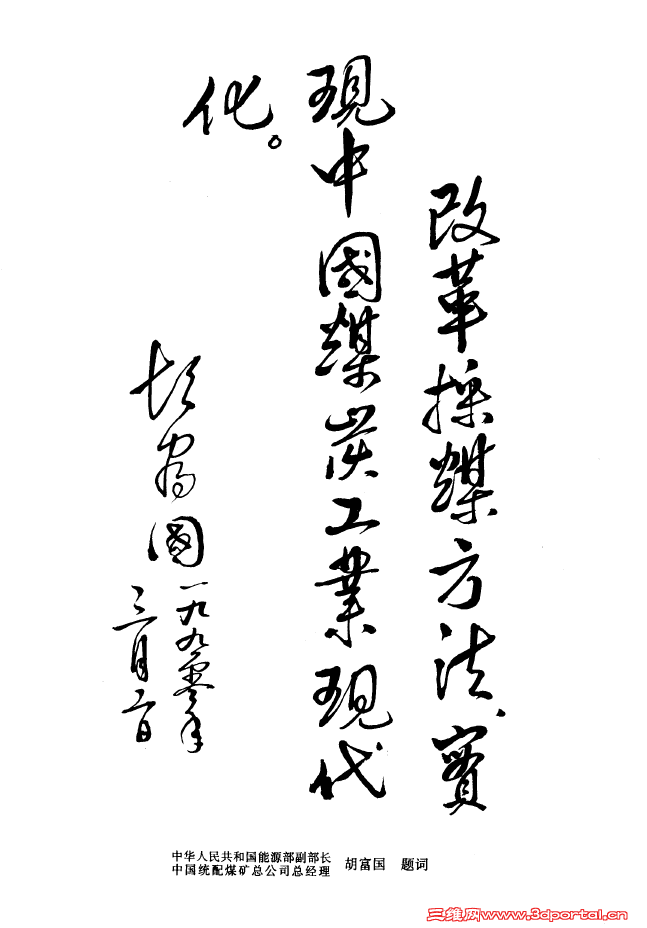 改革採煤方法、實
現中國煤炭工業現代
化。
胡富國
一九九零年
三月二日
中华人民共和国能源部副部长
中国统配煤矿总公司总经理 胡富国 题词
三维网www.3dportal.cn